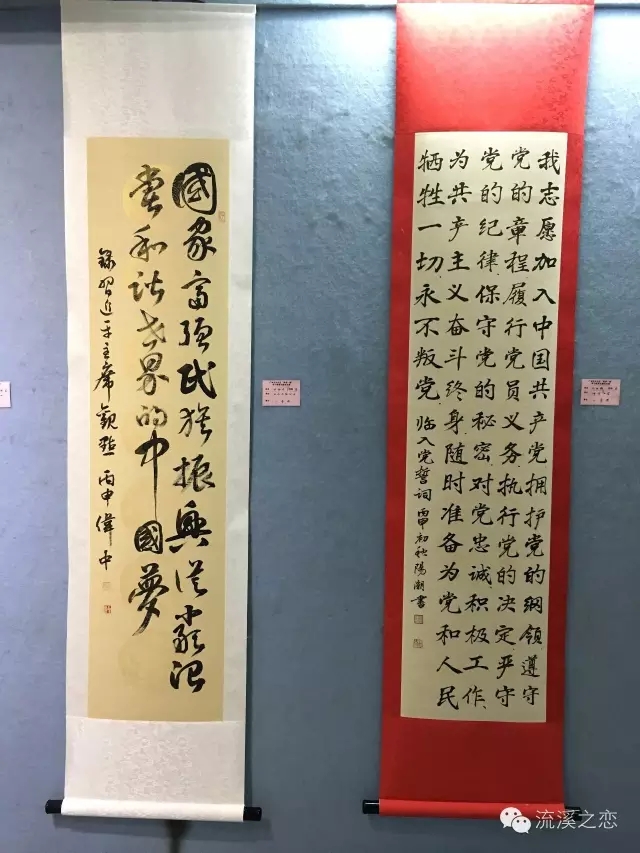 國家富强民族振興從嚴治
党和谐世界的中國夢
錄習近平主席觀點 丙申偉中
我志愿加入中国共产党拥护党的綱領遵守
党的章程履行党员义务执行党的决定严守
党的纪律保守党的秘密对党忠诚积极工作
为共产主义奋斗终身随时准备为党和人民
牺牲一切永不叛党 临入党誓词 丙申初秋陽潮書
流溪之恋